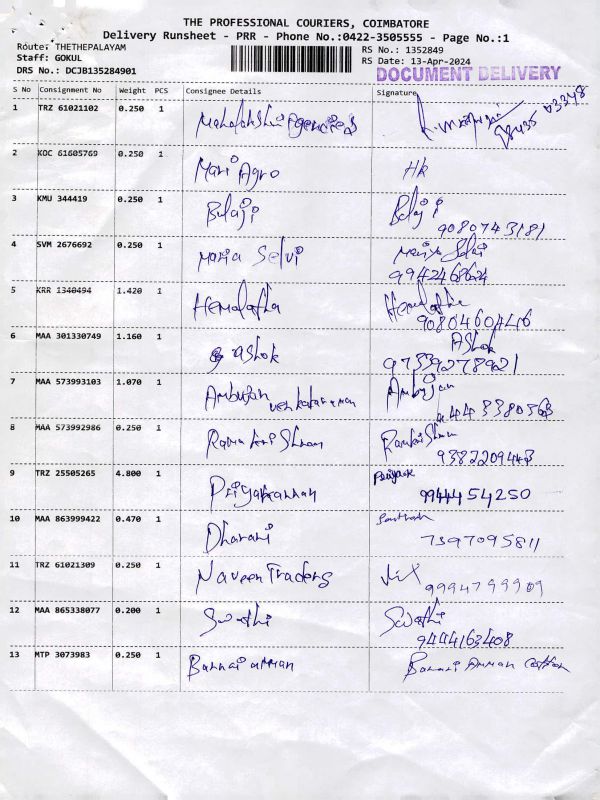 THE PROFESSIONAL COURIERS, COIMBATORE
Delivery Runsheet - PRR - Phone No.:0422-3505555 - Page No.:1
Route: THETHEPALAYAM
RS No.: 1352849
Staff: GOKUL
RS Date: 13-Apr-2024
DRS No.: DCJB135284901
DOCUMENT DELIVERY
S No Consignment No Weight PCS Consignee Details Signature
1 TRZ 61021102 0.250 1 Mahalakshmi Agencies
2 KOC 61605769 0.250 1 Mari Agro HR
3 KMU 344419 0.250 1 Balaji Balaji
9080743181
4 SVM 2676692 0.250 1 Maria Selvi
9942468624
5 KRR 1340494 1.420 1 Hemalatha Hemalatha
9080460446
6 MAA 301330749 1.160 1 Ashok Ashok
97339278921
7 MAA 573993103 1.070 1 Ambujan Venkataraman Ambujan
8 MAA 573992986 0.250 1 Ramakrishnan
9382209443
9 TRZ 25505265 4.800 1 Priyakannan
9944454250
10 MAA 863999422 0.470 1 Dharani Santhosh
7397095811
11 TRZ 61021309 0.250 1 Naveen Traders
9994799909
12 MAA 865338077 0.200 1 Swathi Swathi
9444163408
13 MTP 3073983 0.250 1 Bannari amman Bannari Amman Cotton